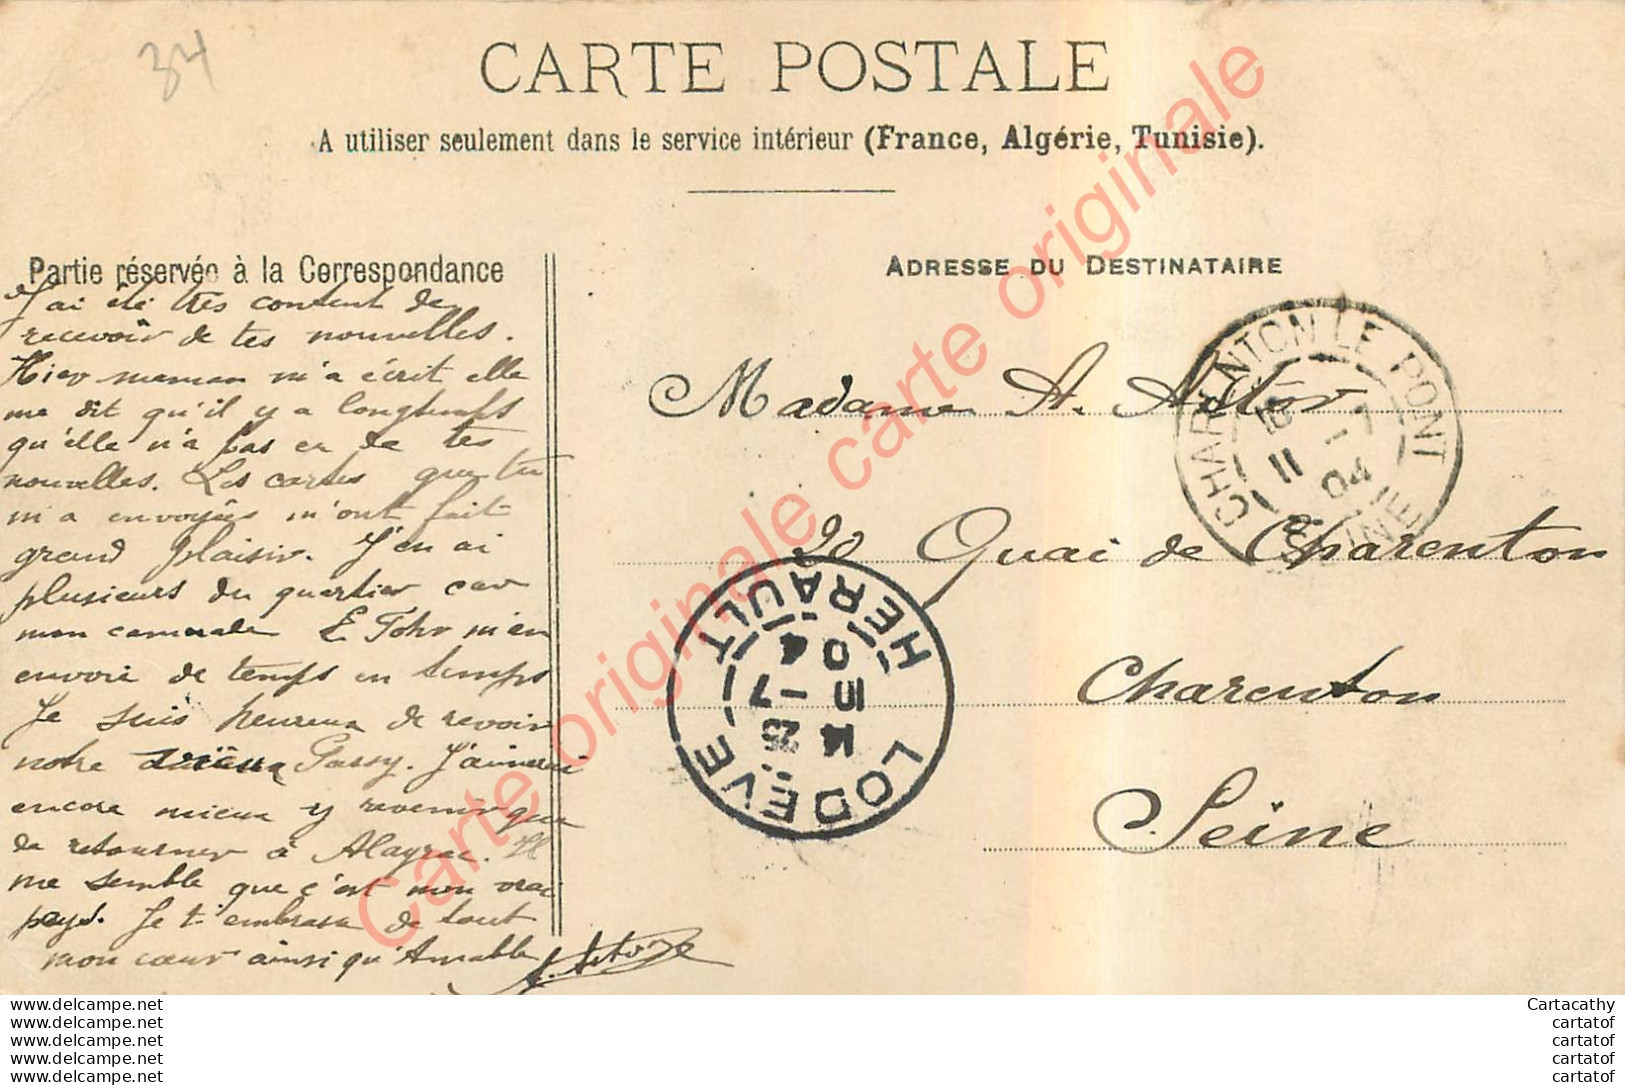 34
CARTE POSTALE
A utiliser seulement dans le service intérieur (France, Algérie, Tunisie).
Partie réservée à la Correspondance
J'ai été très content de
recevoir de tes nouvelles.
Hier maman m'a écrit elle
me dit qu'il y a longtemps
qu'elle n'a pas eu de tes
nouvelles. Les cartes que tu
m'a envoyées m'ont fait
grand plaisir. J'en ai
plusieurs du quartier car
mon camarade E Fohr m'en
envoie de temps en temps
Je suis heureux de revoir
notre Passy. J'aimerai
encore mieux y revenir que
de retourner à Alayrac. Il
me semble que c'est mon vrai
pays. Je t'embrasse de tout
mon cœur ainsi qu'Amable
ADRESSE DU DESTINATAIRE
Madame A. Astor
20 Quai de Charenton
Charenton
Seine
CHARENTON LE PONT
11 -7
04
SEINE
LODEVE
HERAULT
14 25
5 -7
04
Carte originale carte originale
www.delcampe.net
www.delcampe.net
www.delcampe.net
www.delcampe.net
www.delcampe.net
Cartacathy
cartatof
cartatof
cartatof
cartatof